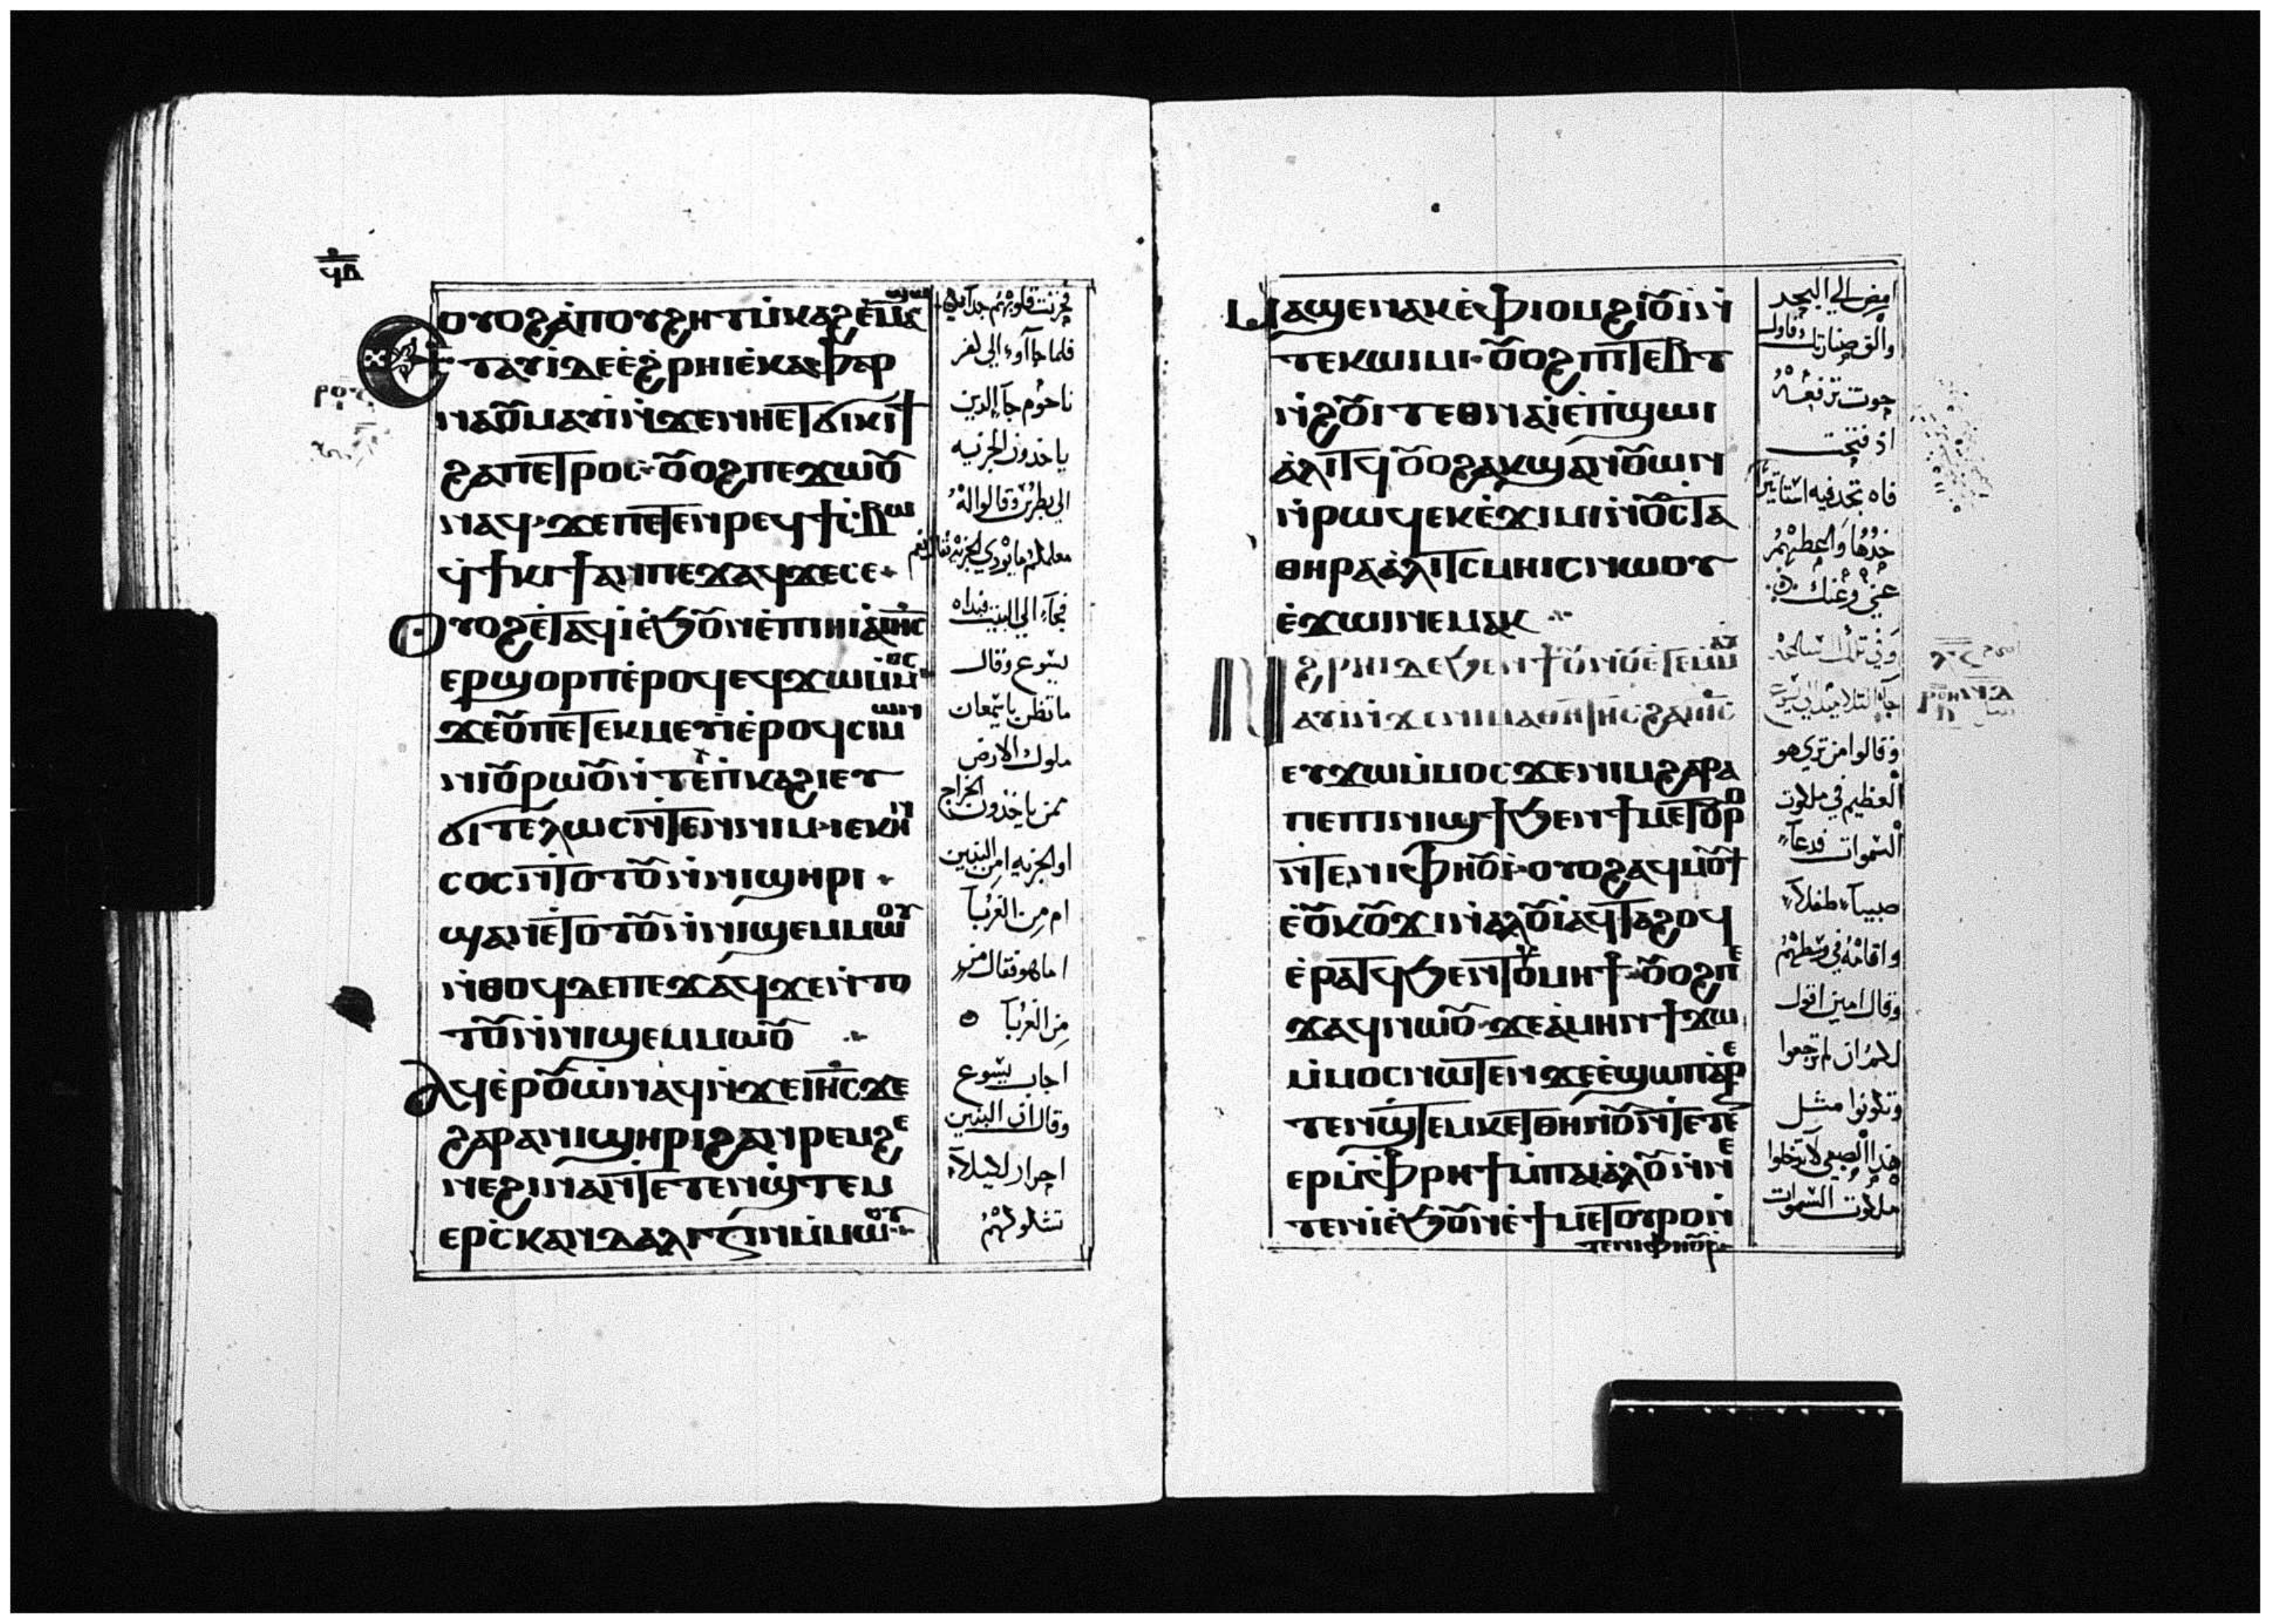 ϥⲁ
ⲟⲩⲟϩ ⲁ̀ⲡⲟⲩϩⲏⲧ ⲙ̀ⲕⲁϩ ⲉ̀ⲙⲁϣⲱ
ⲉⲧⲁⲩⲓ̀ ⲇⲉ ⲉ̀ϩⲣⲏⲓ ⲉ̀ⲕⲁⲫⲁⲣ
ⲛⲁⲟⲩⲙ ⲁⲩⲓ̀ ⲛ̀ϫⲉ ⲛⲏⲉⲧϭⲓⲕⲓϯ
ϩⲁ ⲡⲉⲧⲣⲟⲥ ⲟⲩⲟϩ ⲡⲉϫⲱⲟⲩ
ⲛⲁϥ ϫⲉ ⲡⲉⲧⲉⲛⲣⲉϥϯⲥⲃⲱ
ϥ̀ϯⲕⲓϯ ⲁⲛ ⲡⲉϫⲁϥ ϫⲉ ⲥⲉ
ⲟⲩⲟϩ ⲉ̀ⲧⲁϥⲓ̀ ⲉ̀ϧⲟⲩⲛ ⲉ̀ⲡⲓⲏⲓ ⲁ̀ ⲓⲏ̅ⲥ̅
ⲉⲣϣⲟⲣⲡ ⲉ̀ⲣⲟϥ ⲉϥϫⲱ ⲙ̀ⲙⲟⲥ
ϫⲉ ⲟⲩ ⲡⲉⲧⲉⲕⲙⲉⲩⲓ̀ ⲉ̀ⲣⲟϥ ⲥⲓⲙⲱⲛ
ⲛⲓⲟⲩⲣⲱⲟⲩ ⲛ̀ⲧⲉ ⲡ̀ⲕⲁϩⲓ ⲉⲩ
ϭⲓⲧⲉⲗⲱⲥ ⲛ̀ⲧⲉⲛ ⲛⲓⲙ ⲓⲉ ⲕⲏⲛ
ⲥⲟⲥ ⲛ̀ⲧⲟⲧⲟⲩ ⲛ̀ⲛⲓϣⲏⲣⲓ
ϣⲁⲛ ⲉ̀ⲧⲟⲧⲟⲩ ⲛ̀ⲛⲓϣⲉⲙⲙⲱⲟⲩ
ⲛ̀ⲑⲟϥ ⲇⲉ ⲡⲉϫⲁϥ ϫⲉ ⲛ̀ⲧⲟ
ⲧⲟⲩ ⲛ̀ⲛⲓϣⲉⲙⲙⲱⲟⲩ
ⲁϥⲉ̀ⲣⲟⲩⲱ̀ ⲛⲁϥ ⲛ̀ϫⲉ ⲓⲏ̅ⲥ̅ ϫⲉ
ϩⲁⲣⲁ ⲛⲓϣⲏⲣⲓ ϩⲁⲛⲣⲉⲙϩⲉ
ⲛⲉ ϩⲓⲛⲁ ⲛ̀ⲧⲉⲧⲉⲛϣ̀ⲧⲉⲙ
ⲉⲣⲥ̀ⲕⲁⲛⲇⲁⲗⲓⲍⲓⲛ ⲙ̀ⲙⲱⲟⲩ
فلما جاآوا الي كفر
ناحوم جآ الدين
ياخدون الجزيه
الي بطرس وقالوا له
فجآء الي البيت فبداه
يسوع وقال
ما تظن يا سمعان
ملوك الارض
ممن ياخذون الخراج
او الجزيه امن البنين
ام من الغربآ
اما هو فقال من
من الغربآ
اجاب يسوع
وقال ان البنين
احرار لكيلآ
تشكوكهم
ⲙⲁϣⲉⲛⲁⲕ ⲉ̀ⲫⲓⲟⲙ ϩⲓⲟⲩⲓ̀ ⲛ̀
ⲧⲉⲕⲱⲓⲙⲓ ⲟⲩⲟϩ ⲡⲓⲧⲉⲃⲧ
ⲛ̀ϩⲟⲩⲓⲧ ⲉⲑⲛⲁⲓ̀ ⲉ̀ⲡ̀ϣⲱⲓ
ⲁ̀ⲗⲓⲧϥ ⲟⲩⲟϩ ⲁⲕϣⲁⲛⲟⲩⲱⲛ
ⲛ̀ⲣⲱϥ ⲉⲕⲉ̀ϫⲓⲙⲓ ⲛ̀ⲟⲩⲥⲧⲁ
ⲑⲏⲣⲁ ⲁ̀ⲗⲓⲧⲥ ⲙⲏⲓⲥ ⲛⲱⲟⲩ
ⲉ̀ϫⲱⲓ ⲛⲉⲙⲁⲕ
ⲛ̀ϩⲣⲏⲓ ⲇⲉ ϧⲉⲛ ϯⲟⲩⲛⲟⲩ ⲉ̀ⲧⲉⲙⲙⲁⲩ
ⲁⲩⲓ̀ ⲛ̀ϫⲉ ⲛⲓⲙⲁⲑⲏⲧⲏⲥ ϩⲁ ⲓⲏ̅ⲥ̅
ⲉⲩϫⲱ ⲙ̀ⲙⲟⲥ ϫⲉ ⲛⲓⲙ ϩⲁⲣⲁ
ⲡⲉ ⲡⲓⲛⲓϣϯ ϧⲉⲛ ϯⲙⲉⲧⲟⲩⲣⲟ
ⲛ̀ⲧⲉ ⲛⲓⲫⲏⲟⲩⲓ̀ ⲟⲩⲟϩ ⲁϥⲙⲟⲩϯ
ⲉ̀ⲟⲩⲕⲟⲩϫⲓ ⲛ̀ⲁⲗⲟⲩ ⲁϥⲧⲁϩⲟϥ
ⲉ̀ⲣⲁⲧϥ ϧⲉⲛ ⲧⲟⲩⲙⲏϯ ⲟⲩⲟϩ ⲡⲉ
ϫⲁϥ ⲛⲱⲟⲩ ϫⲉ ⲁ̀ⲙⲏⲛ ϯϫⲱ
ⲙ̀ⲙⲟⲥ ⲛⲱⲧⲉⲛ ϫⲉ ⲉ̀ϣⲱⲡ ⲁⲣⲉ
ⲧⲉⲛϣ̀ⲧⲉⲙⲕⲉⲧⲑⲏⲛⲟⲩ ⲛ̀ⲧⲉⲧⲉ
ⲉⲣ ⲙ̀ⲫ̀ⲣⲏϯ ⲙ̀ⲡⲁⲓⲁ̀ⲗⲟⲩ ⲛ̀ⲛⲉ
ⲧⲉⲛⲓ̀ ⲉ̀ϧⲟⲩⲛ ⲉ̀ϯⲙⲉⲧⲟⲩⲣⲟ ⲛ̀
ⲧⲉ ⲛⲓⲫⲏⲟⲩⲓ̀
امض الي البحر
والق صنارتك واول
حوت ترفعه
اذ فتحت
فاه تجد فيه استاتيرا
خدها واعطيهم
عني وعنك
وفي تلك الساعة
جآء التلاميذ الي يسوع
وقالوا من تري هو
العظيم في ملكوت
السموات فدعآ
صبيآ طفلآ
واقامه في وسطهم
وقال امين اقول
لكم ان لم ترجعوا
وتكونوا مثل
هذا الصبي لا تدخلوا
ملكوت السموات